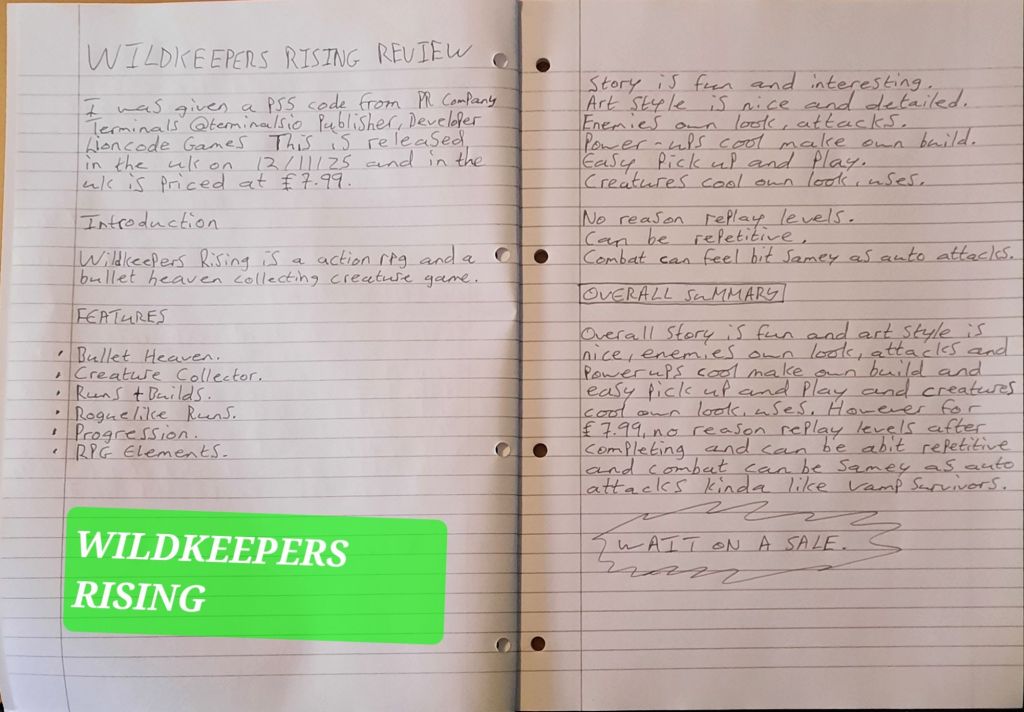 WILDKEEPERS RISING REVIEW
I was given a PS5 code from PR Company
Terminals @terminalsio Publisher, Developer
Wioncode Games This is released
in the uk on 12/11/25 and in the
uk is priced at £7.99.
Introduction
Wildkeepers Rising is a action rpg and a
bullet heaven collecting creature game.
FEATURES
• Bullet Heaven.
• Creature Collector.
• Runs + Builds.
• Roguelike Runs.
• Progression.
• RPG Elements.
WILDKEEPERS
RISING
Story is fun and interesting.
Art Style is nice and detailed.
Enemies own look, attacks.
Power-ups cool make own build.
Easy pick up and play.
Creatures cool own look, uses.
No reason replay levels.
Can be repetitive.
Combat can feel bit samey as auto attacks.
OVERALL SUMMARY
Overall Story is fun and art style is
nice, enemies own look, attacks and
powerups cool make own build and
easy pick up and play and creatures
cool own look, uses. However for
£7.99, no reason replay levels after
completing and can be abit repetitive
and combat can be samey as auto
attacks kinda like vamp survivors.
WAIT ON A SALE.